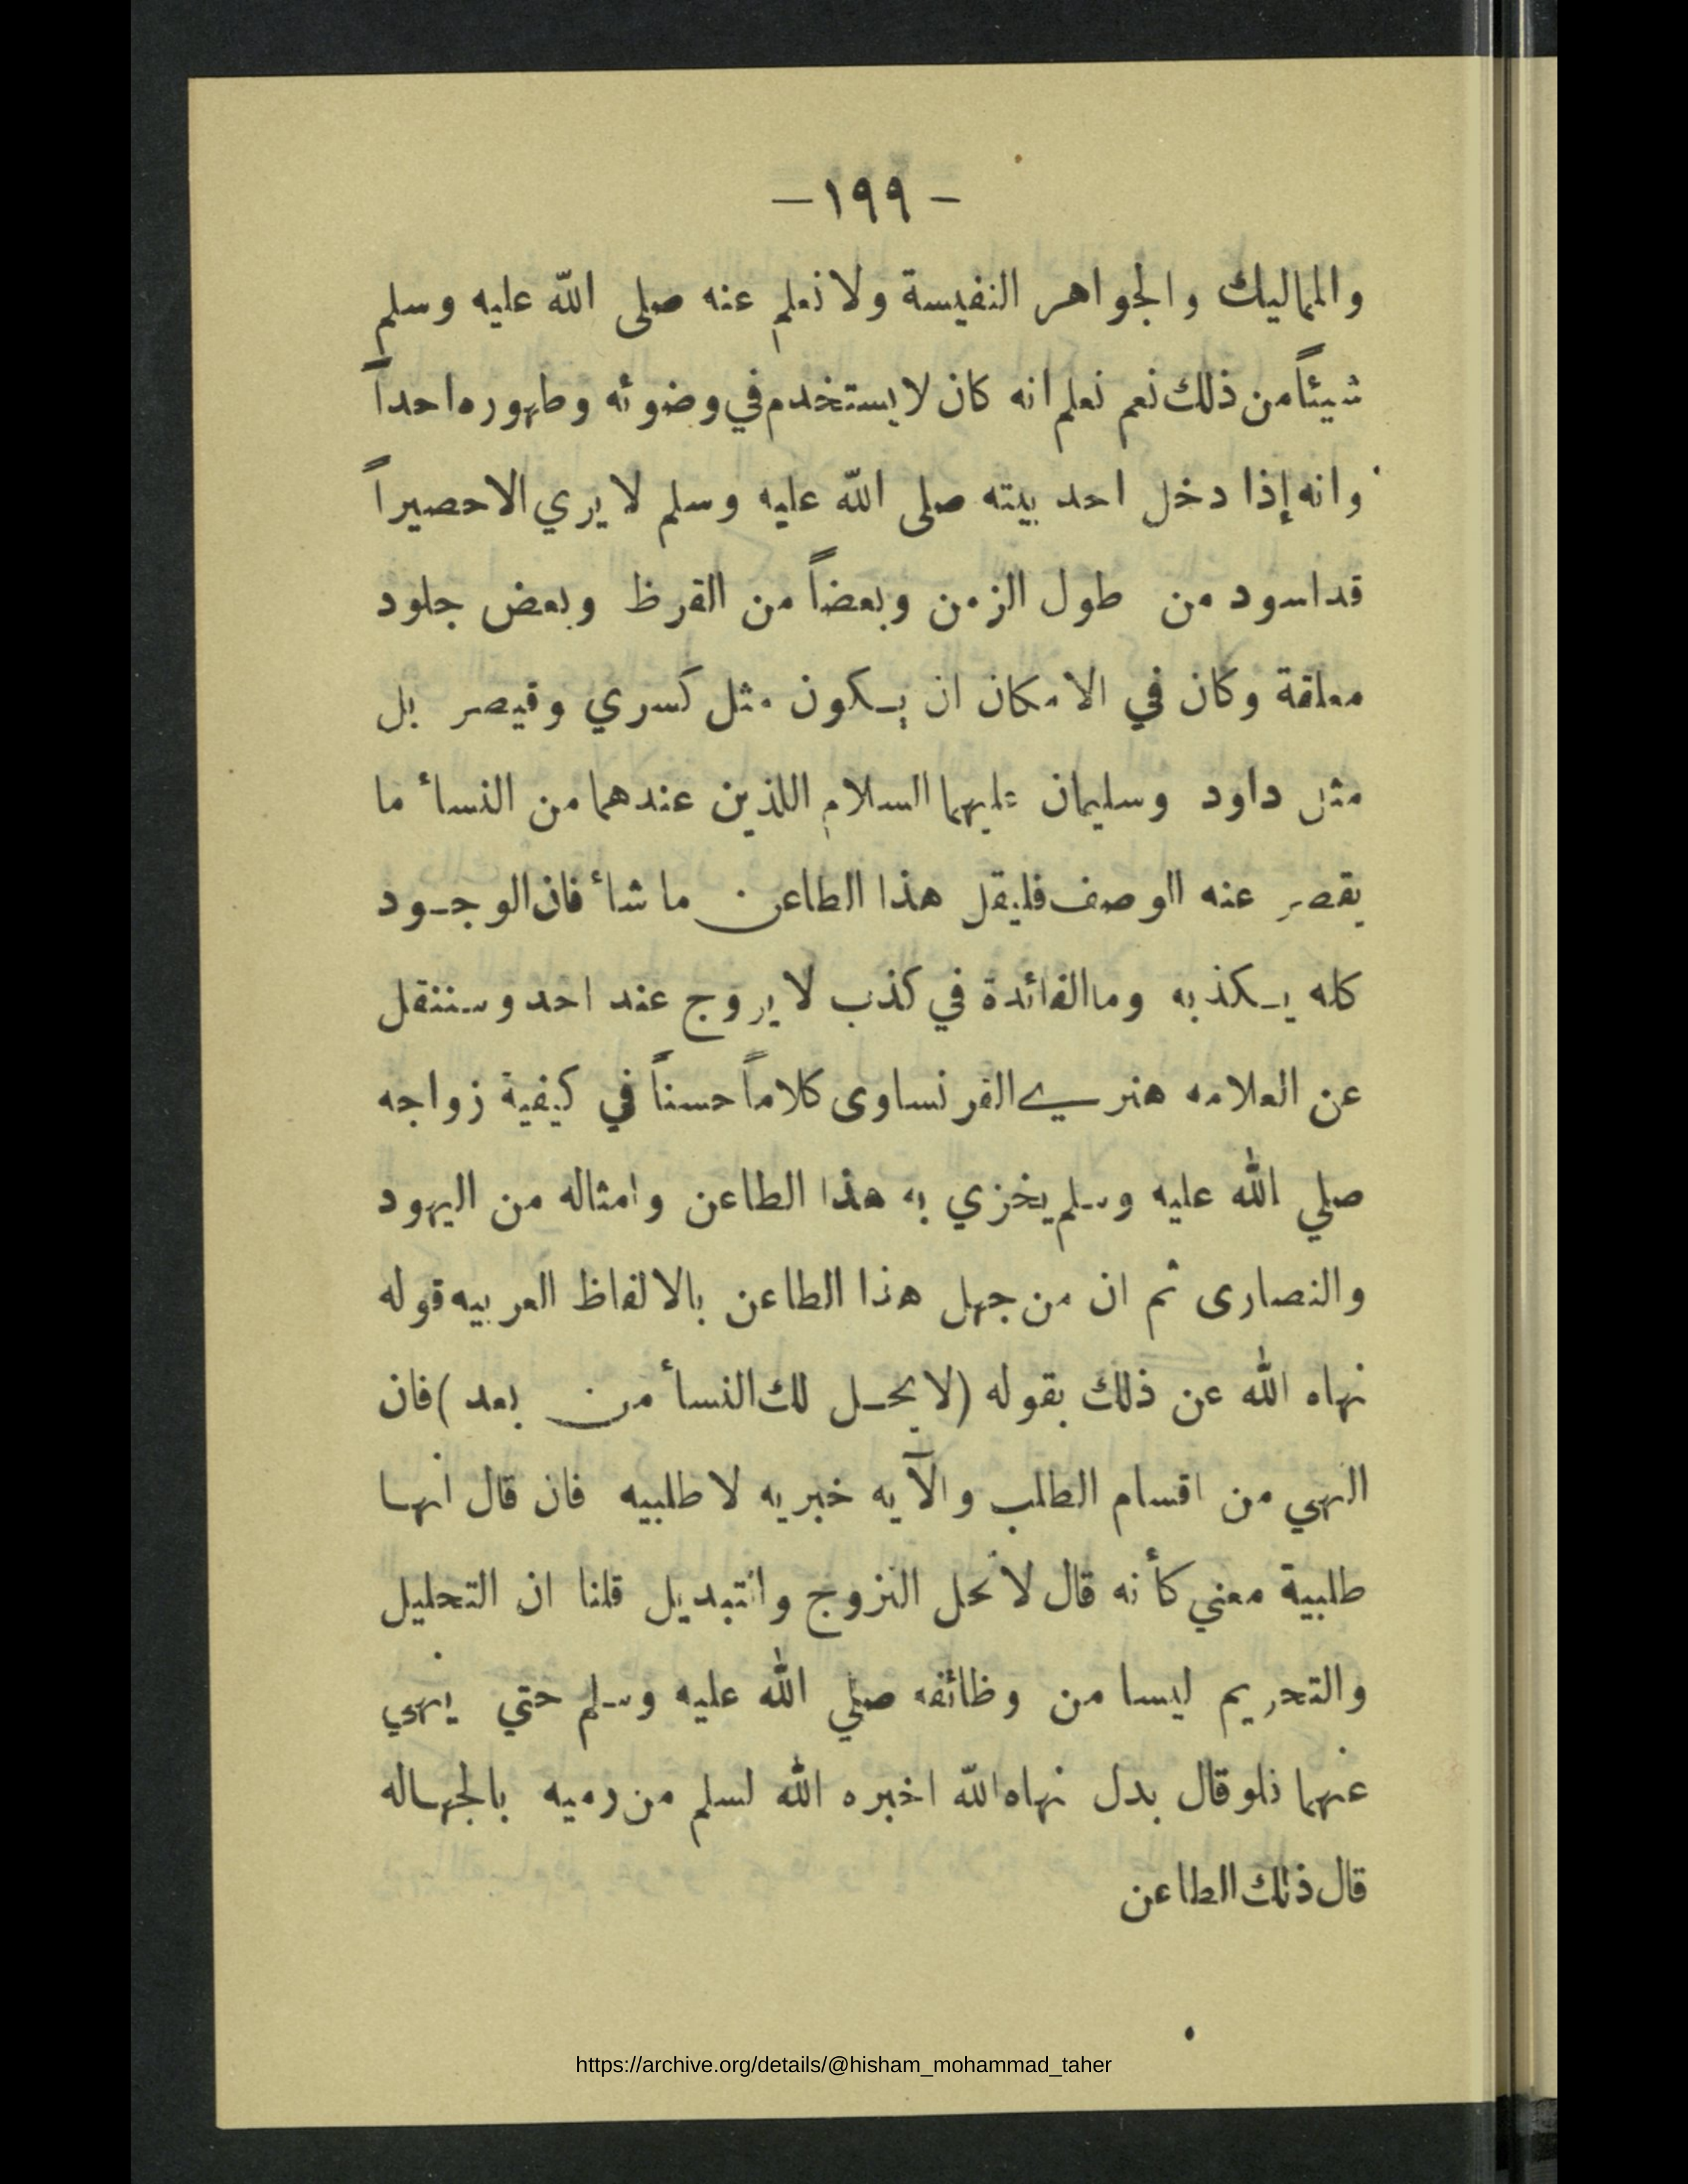 — ١٩٩ —
والمماليك والجواهر النفيسة ولا نعلم عنه صلى الله عليه وسلم
شيئاً من ذلك نعم نعلم انه كان لا يستخدم في وضوئه وطهوره احداً
وانه إذا دخل احد بيته صلى الله عليه وسلم لا يري الا حصيراً
قد اسود من طول الزمن وبعضاً من القرظ وبعض جلود
معلقة وكان في الامكان ان يـكون مثل كسري وقيصر بل
مثل داود وسليمان عليهما السلام اللذين عندهما من النسأ ما
يقصر عنه الوصف فليقل هذا الطاعن ما شأ فان الوجـود
كله يـكذبه وما الفائدة في كذب لا يروج عند احد وسننقل
عن العلامه هنري الفرنساوى كلاماً حسناً في كيفية زواجه
صلي الله عليه وسلم يخزي به هذا الطاعن وامثاله من اليهود
والنصارى ثم ان من جهل هذا الطاعن بالالفاظ العربيه قوله
نهاه الله عن ذلك بقوله (لا يحـل لك النسأ من بعد) فان
النهي من اقسام الطلب والآيه خبريه لا طلبيه فان قال انهـا
طلبية معني كأنه قال لا تحل التزوج والتبديل قلنا ان التحليل
والتحريم ليسا من وظائفه صلي الله عليه وسلم حتي ينهي
عنهما فلو قال بدل نهاه الله اخبره الله لسلم من رميه بالجهـاله
قال ذلك الطاعن
https://archive.org/details/@hisham_mohammad_taher